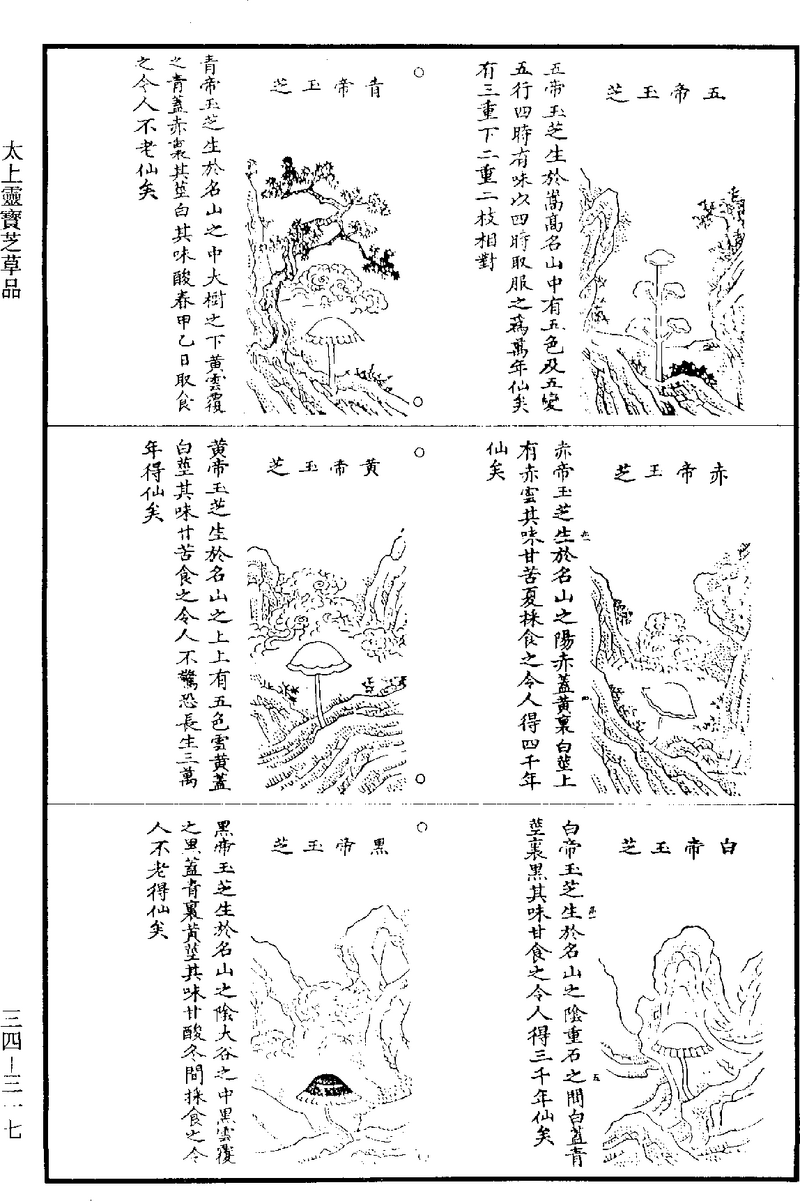 太上靈寶芝草品
三四—三一七
五帝玉芝
五帝玉芝生於嵩高名山中有五色及五變
五行四時有味以四時取服之為萬年仙矣
有三重下二重二枝相對
青帝玉芝
青帝玉芝生於名山之中大樹之下黃雲覆
之青蓋赤裏其莖白其味酸春甲乙日取食
之令人不老仙矣
赤帝玉芝
赤帝玉芝生於名山之陽赤蓋黃裏白莖上
有赤雲其味甘苦夏採食之令人得四千年
仙矣
黃帝玉芝
黃帝玉芝生於名山之上上有五色雲黃蓋
白莖其味甘苦食之令人不驚恐長生三萬
年得仙矣
白帝玉芝
白帝玉芝生於名山之陰重石之間白蓋青
莖裏黑其味甘食之令人得三千年仙矣
黑帝玉芝
黑帝玉芝生於名山之陰大谷之中黑雲覆
之黑蓋青裏黃莖其味甘酸冬間採食之令
人不老得仙矣